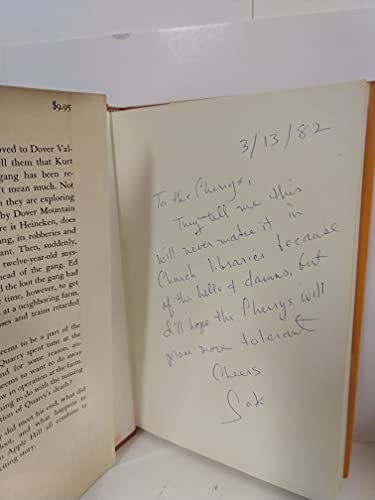 $9.95
oved to Dover Val-
ell them that Kurt
gang has been re-
't mean much. Not
they are exploring
by Dover Mountain
re is Heineken, does
ng, its robberies and
ant. Then, suddenly,
twelve-year-old mys-
ead of the gang, Ed
d the loot the gang had
e time, however, to get
at a neighboring farm.
nes and trains retarded
eems to be a part of the
Quarry spent time at the
and for some reason, an-
eems to want to do away
w in operation at the farm.
ting to do with the missing
on of Quarry's death?
y did meet his end, what did
loot, and what happens to
n Apple Hill all combine to
riting story.
3/13/82
To the Pherrys,
They tell me this
will never make it in
Church libraries because
of the hells & damns, but
I'll hope the Pherrys will
prove more tolerant
Cheers
Sak